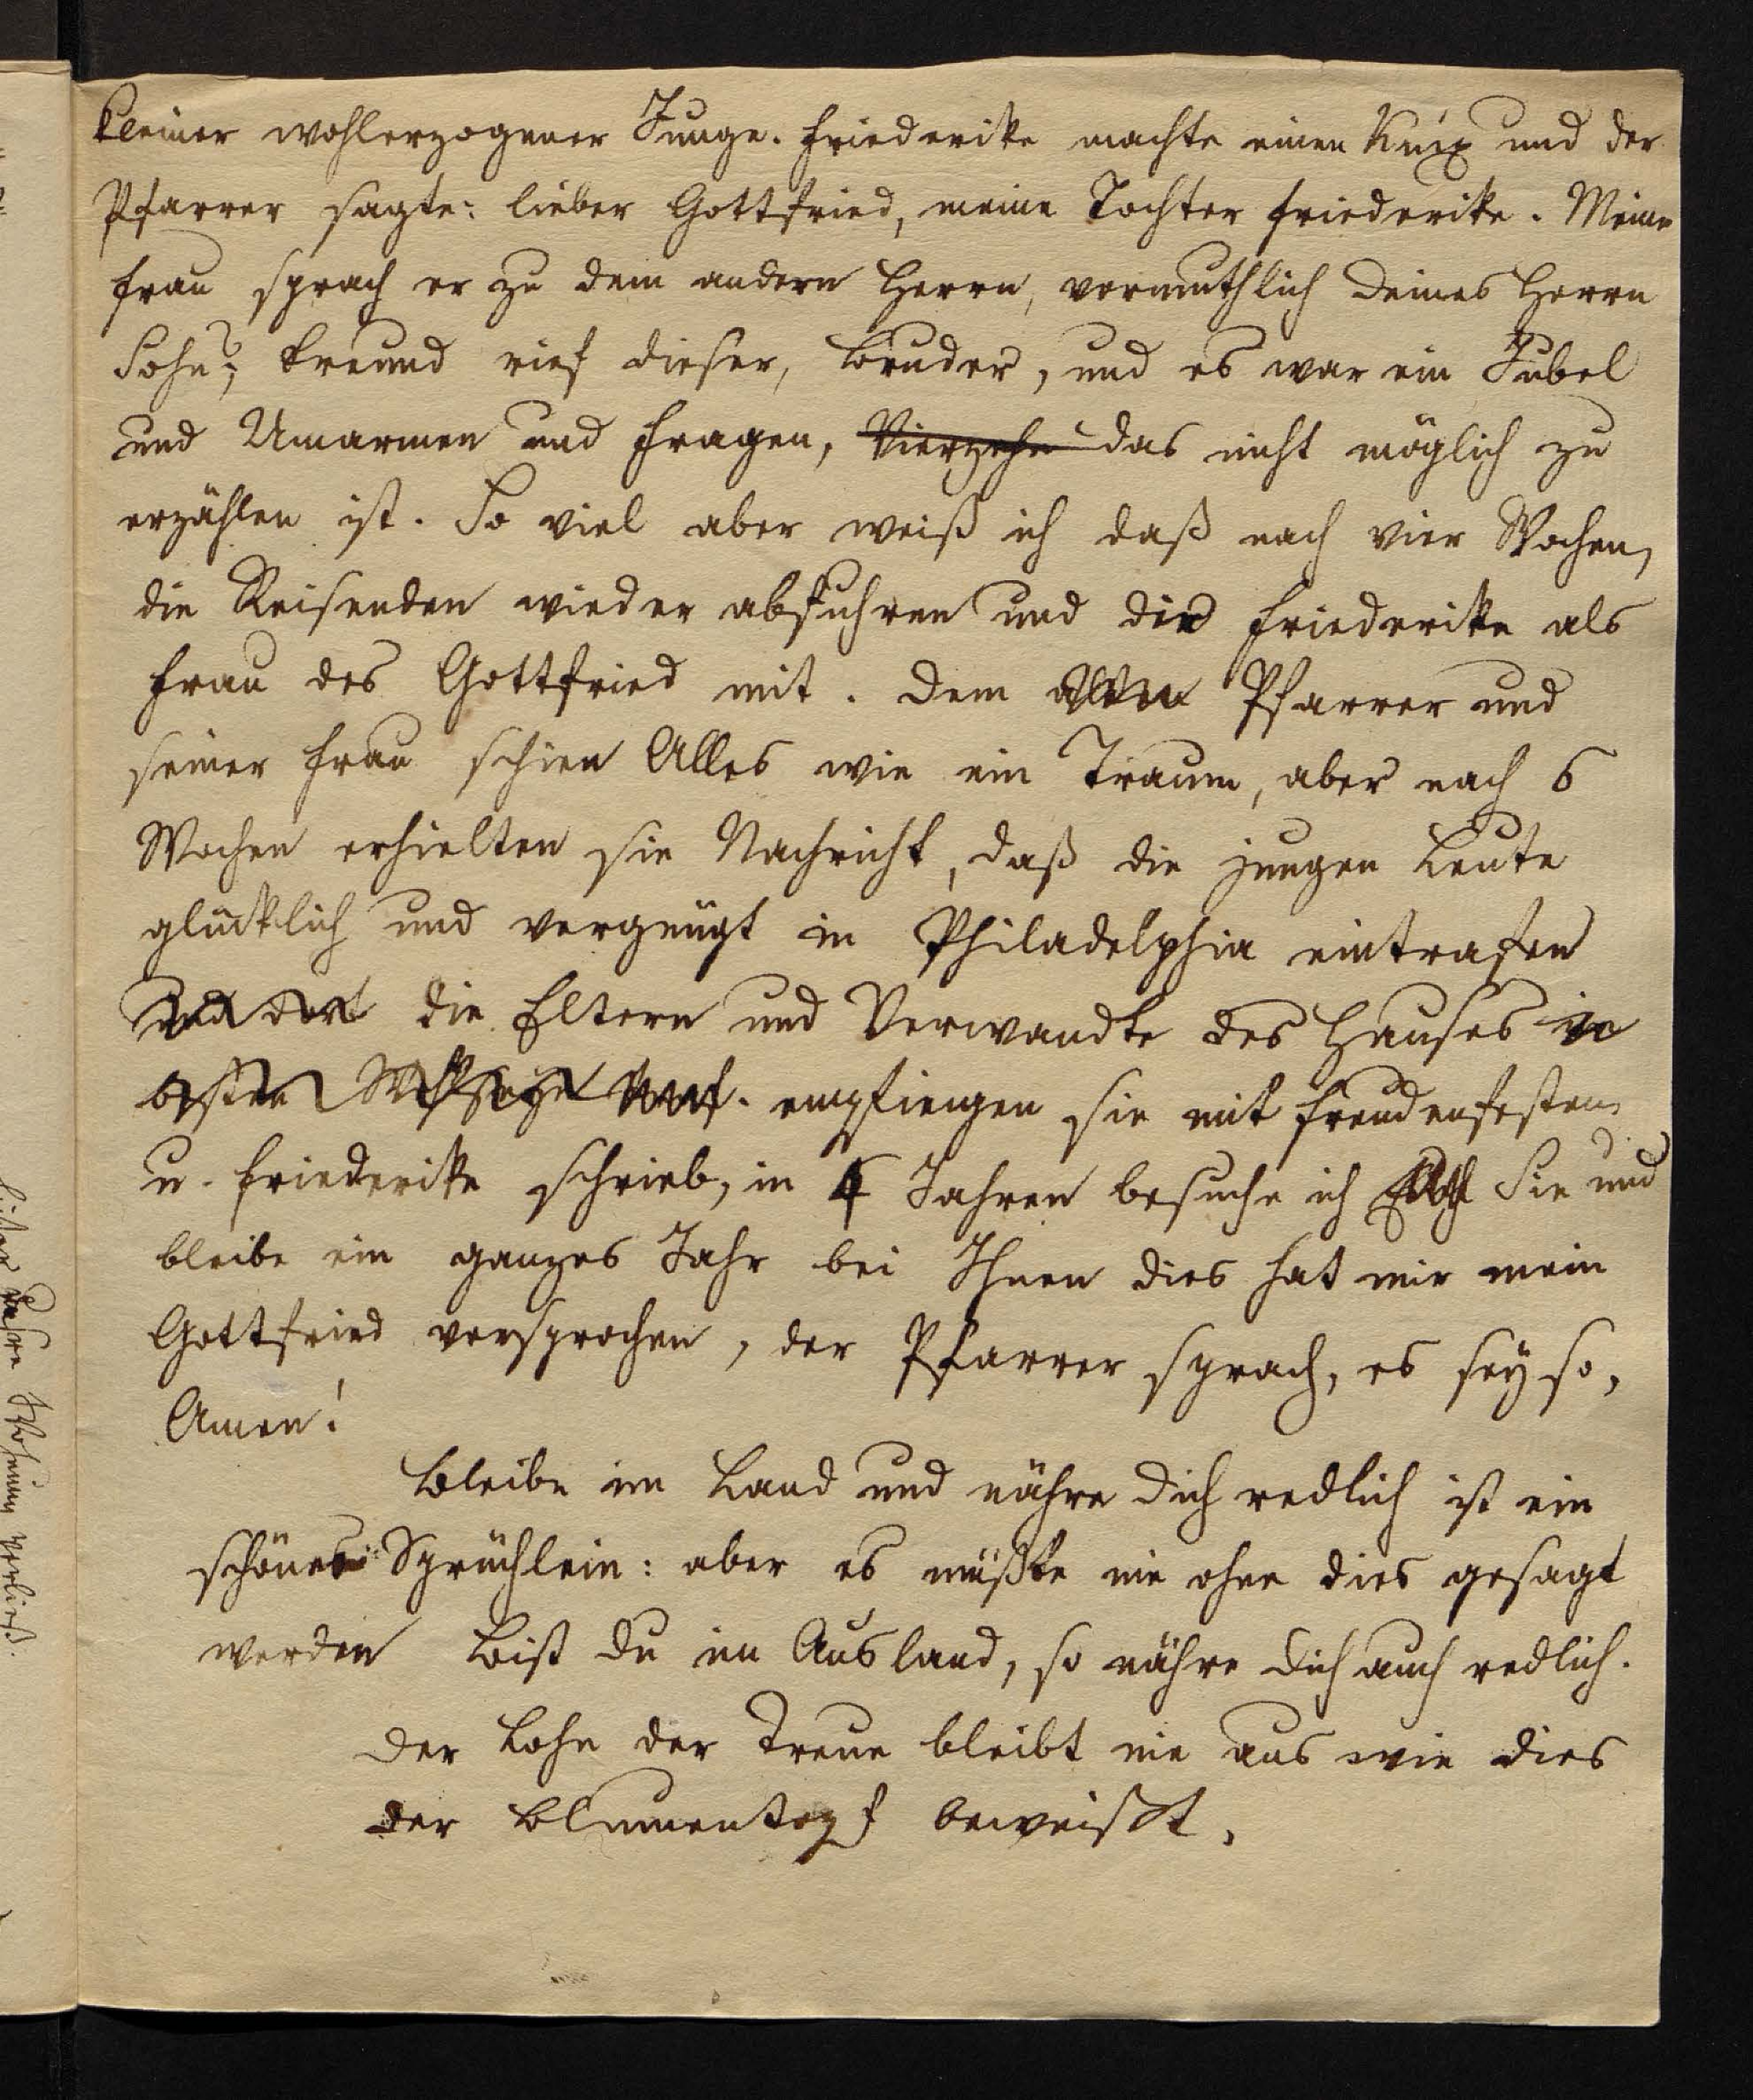 kleiner wohlerzogener Junge. Friederike machte einen Knix und der
Pfarrer sagte: lieber Gottfried, meine Tochter Friederike. Meine
Frau sprach er zu dem andern Herrn, vermuthlich deines Herrn
Sohn; Freund rief dieser, Bruder, und es war ein Jubel
und Umarmen und Fragen, Vierzehn das nicht möglich zu
erzählen ist. So viel aber weiß ich daß nach vier Wochen,
die Reisenden wieder abfuhren und die Friederike als
Frau des Gottfried mit. Dem alten Pfarrer und
seiner Frau schien Alles wie ein Traum, aber nach 6
Wochen erhielten sie Nachricht, daß die jungen Leute
glücklich und vergnügt in Philadelphia eintrafen
und dort die Eltern und Verwandte des Hauses in
besten empfiengen sie mit Freudenfesten
u. Friederike schrieb, in 4 Jahren besuche ich Euch Sie und
bleibe ein ganzes Jahr bei Ihnen dies hat mir mein
Gottfried versprochen, der Pfarrer sprach, es sey so,
Amen!
Bleibe im Land und nähre dich redlich ist ein
schönes Sprüchlein: aber es müßte nie ohne dies gesagt
werden Bist du im Ausland, so nähre dich auch redlich.
Der Lohn der Treue bleibt nie aus wie dies
der Blumentopf beweißt.
Wohnung verließ.